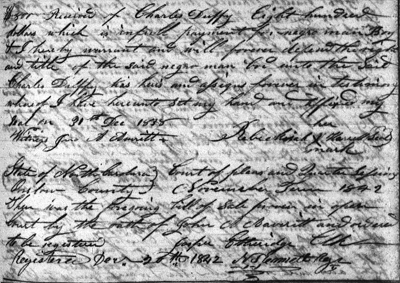 $800 Received of Charles Duffy Eight hundred
dollars which is in full payment for negro man Boy
I hereby warrant and will forever defend the right
and title of the said negro man unto the said
Charles Duffy his heirs and assigns forever in testimony
whereof I have hereunto set my hand and affixed my
Seal on Dec 1838 her
Witness Jno A Averitt
mark
State of North Carolina Court of pleas and Quarter Sessions
Onslow County November Term 1842
Then was the foregoing bill of sale proven in open
court by the oath of John A Averitt and ordered
to be registered Jasper Etheridge Clk
Registered Dec. 20th 1842